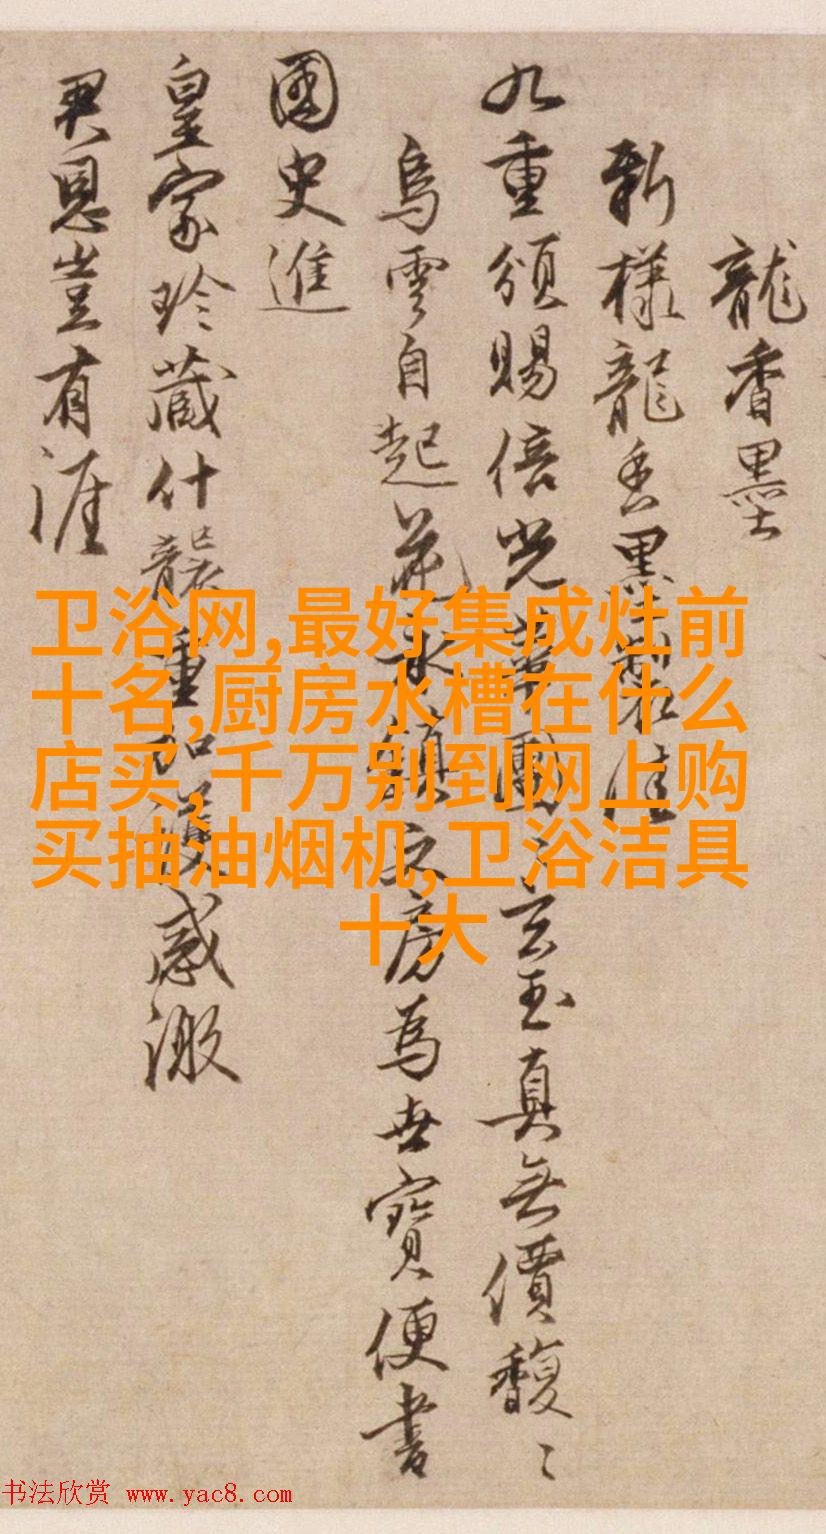 龍香墨
新樣龍香墨製佳
九重頒賜倍光華團〻玄玉真無價馥〻
烏雲自起花水鎮文房為世寶便書
國史進
皇家珍藏什襲重加護感激
君恩豈有涯
卫浴网,最好集成灶前
十名,厨房水槽在什么
店买,千万别到网上购
买抽油烟机,卫浴洁具
十大
书法欣赏 www.yac8.com